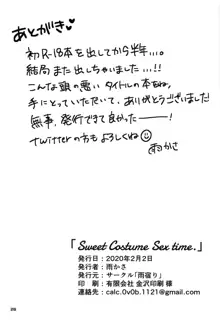 あとがき
初R-18本を出してから半年...。
結局また出しちゃいました・・!!
こんな頭の悪いタイトルの本を
手にとっていただいて、ありがとうございます!
無事、発行できて良かったーーー!
twitterの方もよろしくね
雨かさ
「Sweet Costume Sex time.」
発行日：2020年2月2日
発行者：雨かさ
サークル「雨宿り」
印　刷：有限会社 金沢印刷 様
連絡先：calc.0v0b.1121@gmail.com